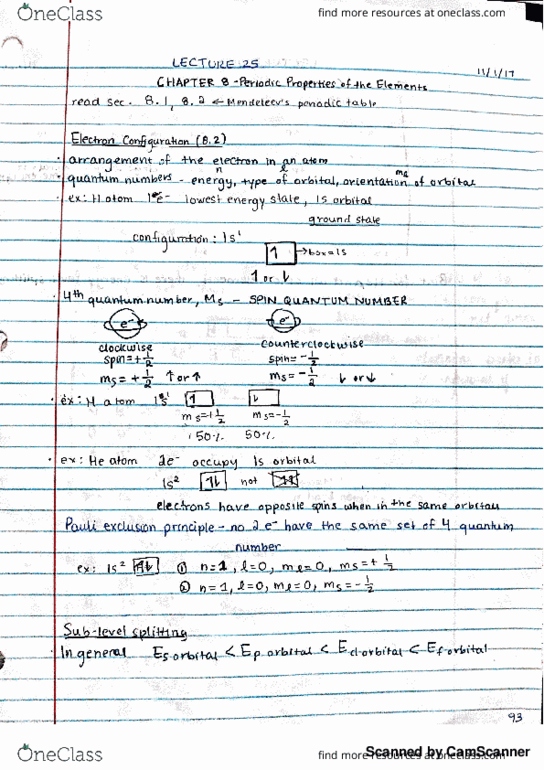 OneClass
find more resources at oneclass.com
LECTURE 25
11/1/17
CHAPTER 8 - Periodic Properties of the Elements
read sec. 8.1, 8.2 ← Mendeleev's periodic table
Electron Configuration (8.2)
· arrangement of the electron in an atom
n l ml
· quantum numbers - energy, type of orbital, orientation of orbital
· ex: H atom 1e⁻ lowest energy state, 1s orbital
ground state
configuration: 1s¹
↿ → box = 1s
↿ or ⇂
· 4th quantum number, Ms - SPIN QUANTUM NUMBER
e⁻ e⁻
clockwise counterclockwise
spin = +1/2 spin = -1/2
ms = +1/2 ↑ or ↿ ms = -1/2 ⇂ or ↓
· ex: H atom 1s¹ ↿ ⇂
ms = +1/2 ms = -1/2
50% 50%
· ex: He atom 2e⁻ occupy 1s orbital
1s² ↿⇂ not ↿↿
electrons have opposite spins when in the same orbital
Pauli exclusion principle - no 2 e⁻ have the same set of 4 quantum
number
ex: 1s² ↿⇂ ① n=1, l=0, ml=0, ms=+1/2
② n=1, l=0, ml=0, ms=-1/2
Sub-level splitting
· In general Es orbital < Ep orbital < Ed orbital < Ef orbital
93
OneClass
find more resources at oneclass.com
Scanned by CamScanner